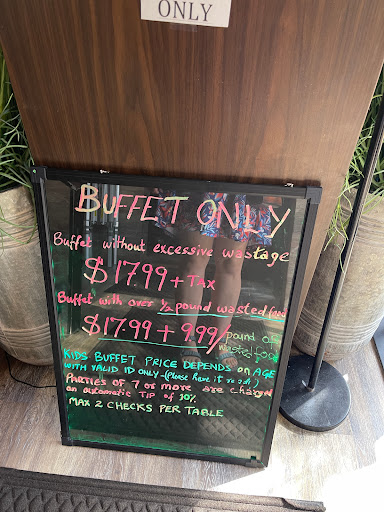 ONLY
BUFFET ONLY
Buffet without excessive wastage
$17.99 + TAX
Buffet with over ½ pound wasted food
$17.99 + 9.99/pound of
wasted food
KIDS BUFFET PRICE DEPENDS on AGE
WITH VALID ID ONLY - (Please have it ready)
PARTIES OF 7 or more are charged
an automatic TIP of 10%
MAX 2 CHECKS PER TABLE